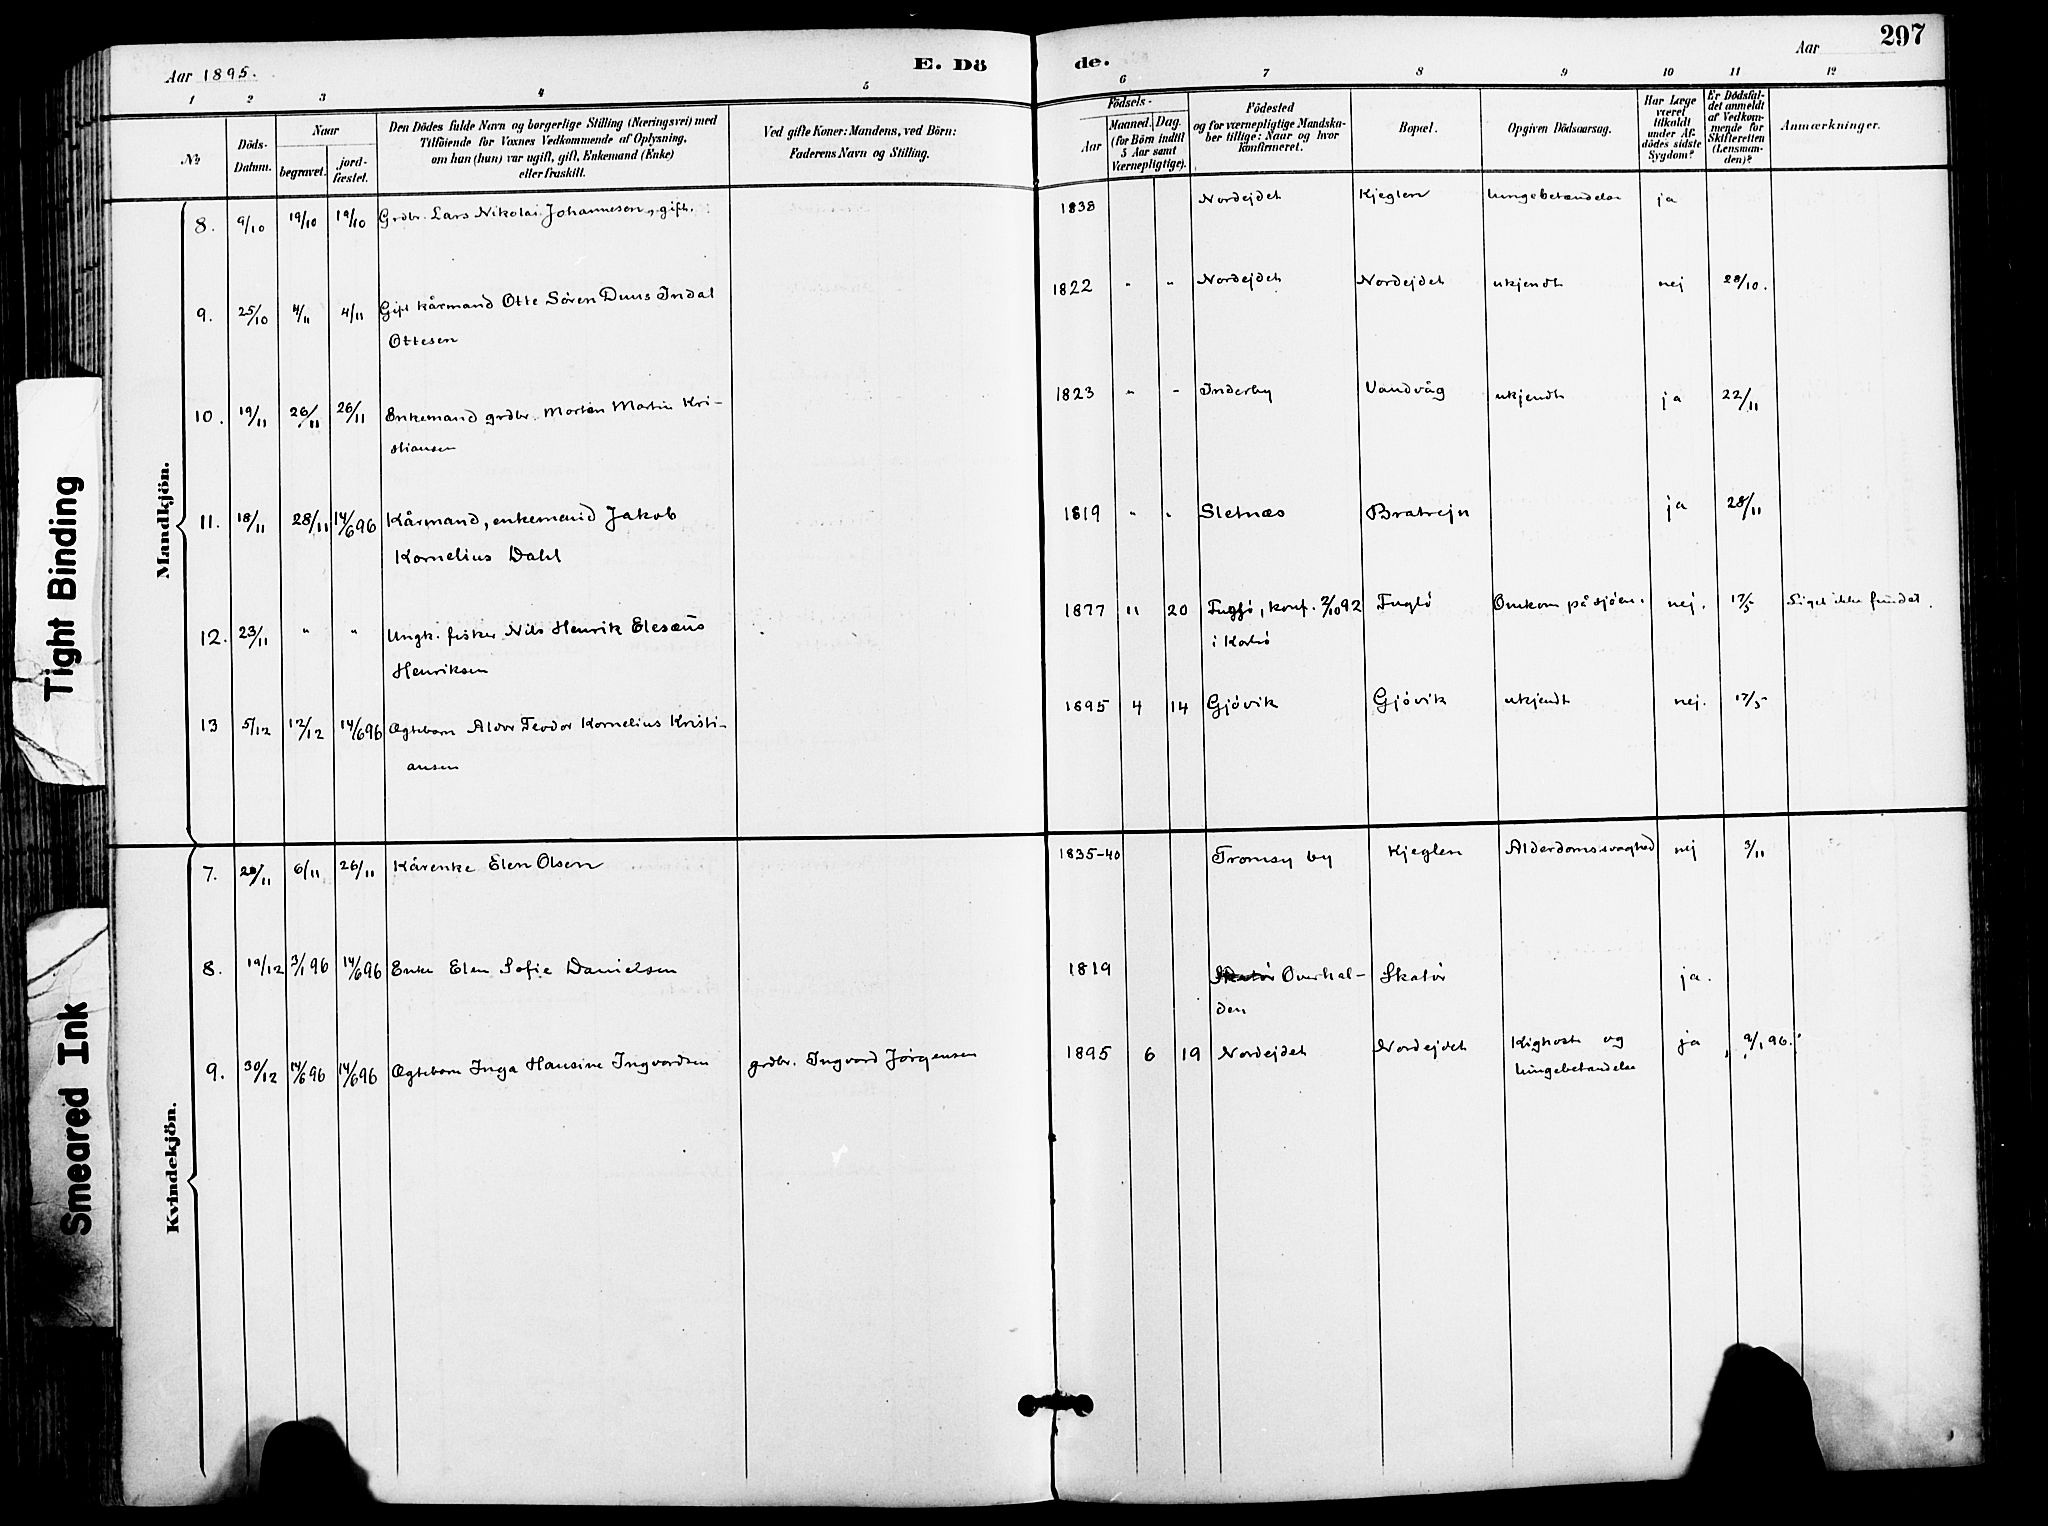 Aar 1895.
E. Dö
de.
Aar
297
1 2 3 4 5 6 7 8 9 10 11 12
№
Döds-
Datum.
Naar
begravet.
jord-
fæstet.
Den Dödes fulde Navn og borgerlige Stilling (Næringsvei) med
Tilföiende for Voxnes Vedkommende af Oplysning,
om han (hun) var ugift, gift, Enkemand (Enke)
eller fraskilt.
Ved gifte Koner: Mandens, ved Börn:
Faderens Navn og Stilling.
Födsels-
Aar
Maaned. Dag.
(for Börn indtil
5 Aar samt
Værnepligtige).
Födested
og for værnepligtige Mandska-
ber tillige: Naar og hvor
konfirmeret.
Bopæl.
Opgiven Dödsaarsag.
Har Læge
været
tilkaldt
under Af-
dödes sidste
Sygdom?
Er Dödsfal-
det anmeldt
af Vedkom-
mende for
Skifteretten
(Lensman-
den)?
Anmærkninger.
Mandkjön.
8. 9/10 19/10 19/10 Grdbr. Lars Nikolai Johannesen, gift. 1838 Nordejdet Kjeglen lungebetændelse ja
9. 25/10 4/11 4/11 Gift kårmand Otte Sören Duus Indal 1822 " " Nordejdet Nordejdet ukjendt nej 28/10.
Ottesen
10. 19/11 26/11 26/11 Enkemand grdbr. Morten Martin Kri- 1823 " " Inderby Vandvåg ukjendt ja 22/11
stiansen
11. 18/11 28/11 14/6 96 Kårmand, enkemand Jakob 1819 " " Sletnæs Bratrejn ja 28/11
Kornelius Dahl
12. 23/11 " " Ungk. fisker Nils Henrik Elesæus 1877 11 20 Fuglö, konf. 2/10 92 Fuglö Omkom på sjöen. nej. 17/5 Liget ikke fundet.
Henriksen i Karlsö
13 5/12 12/12 14/6 96 Ægtebarn Aldor Teodor Kornelius Kristi- 1895 4 14 Gjövik Gjövik ukjendt nej. 17/5
ansen
Kvindekjön.
7. 28/11 6/11 26/11 Kårenke Elen Olsen 1835-40 Tromsø by Kjeglen Alderdomssvaghed nej 3/11
8. 19/12 3/1 96 14/6 96 Enke Elen Sofie Danielsen 1819 Skatör Overhal- Skatör ja.
den
9. 30/12 14/6 96 14/6 96 Ægtebarn Inga Hansine Ingvardsen grdbr. Ingvard Jörgensen 1895 6 19 Nordejdet Nordejdet Kighoste og ja 9/1 96.
lungebetændelse
Tight Binding
Smeared Ink